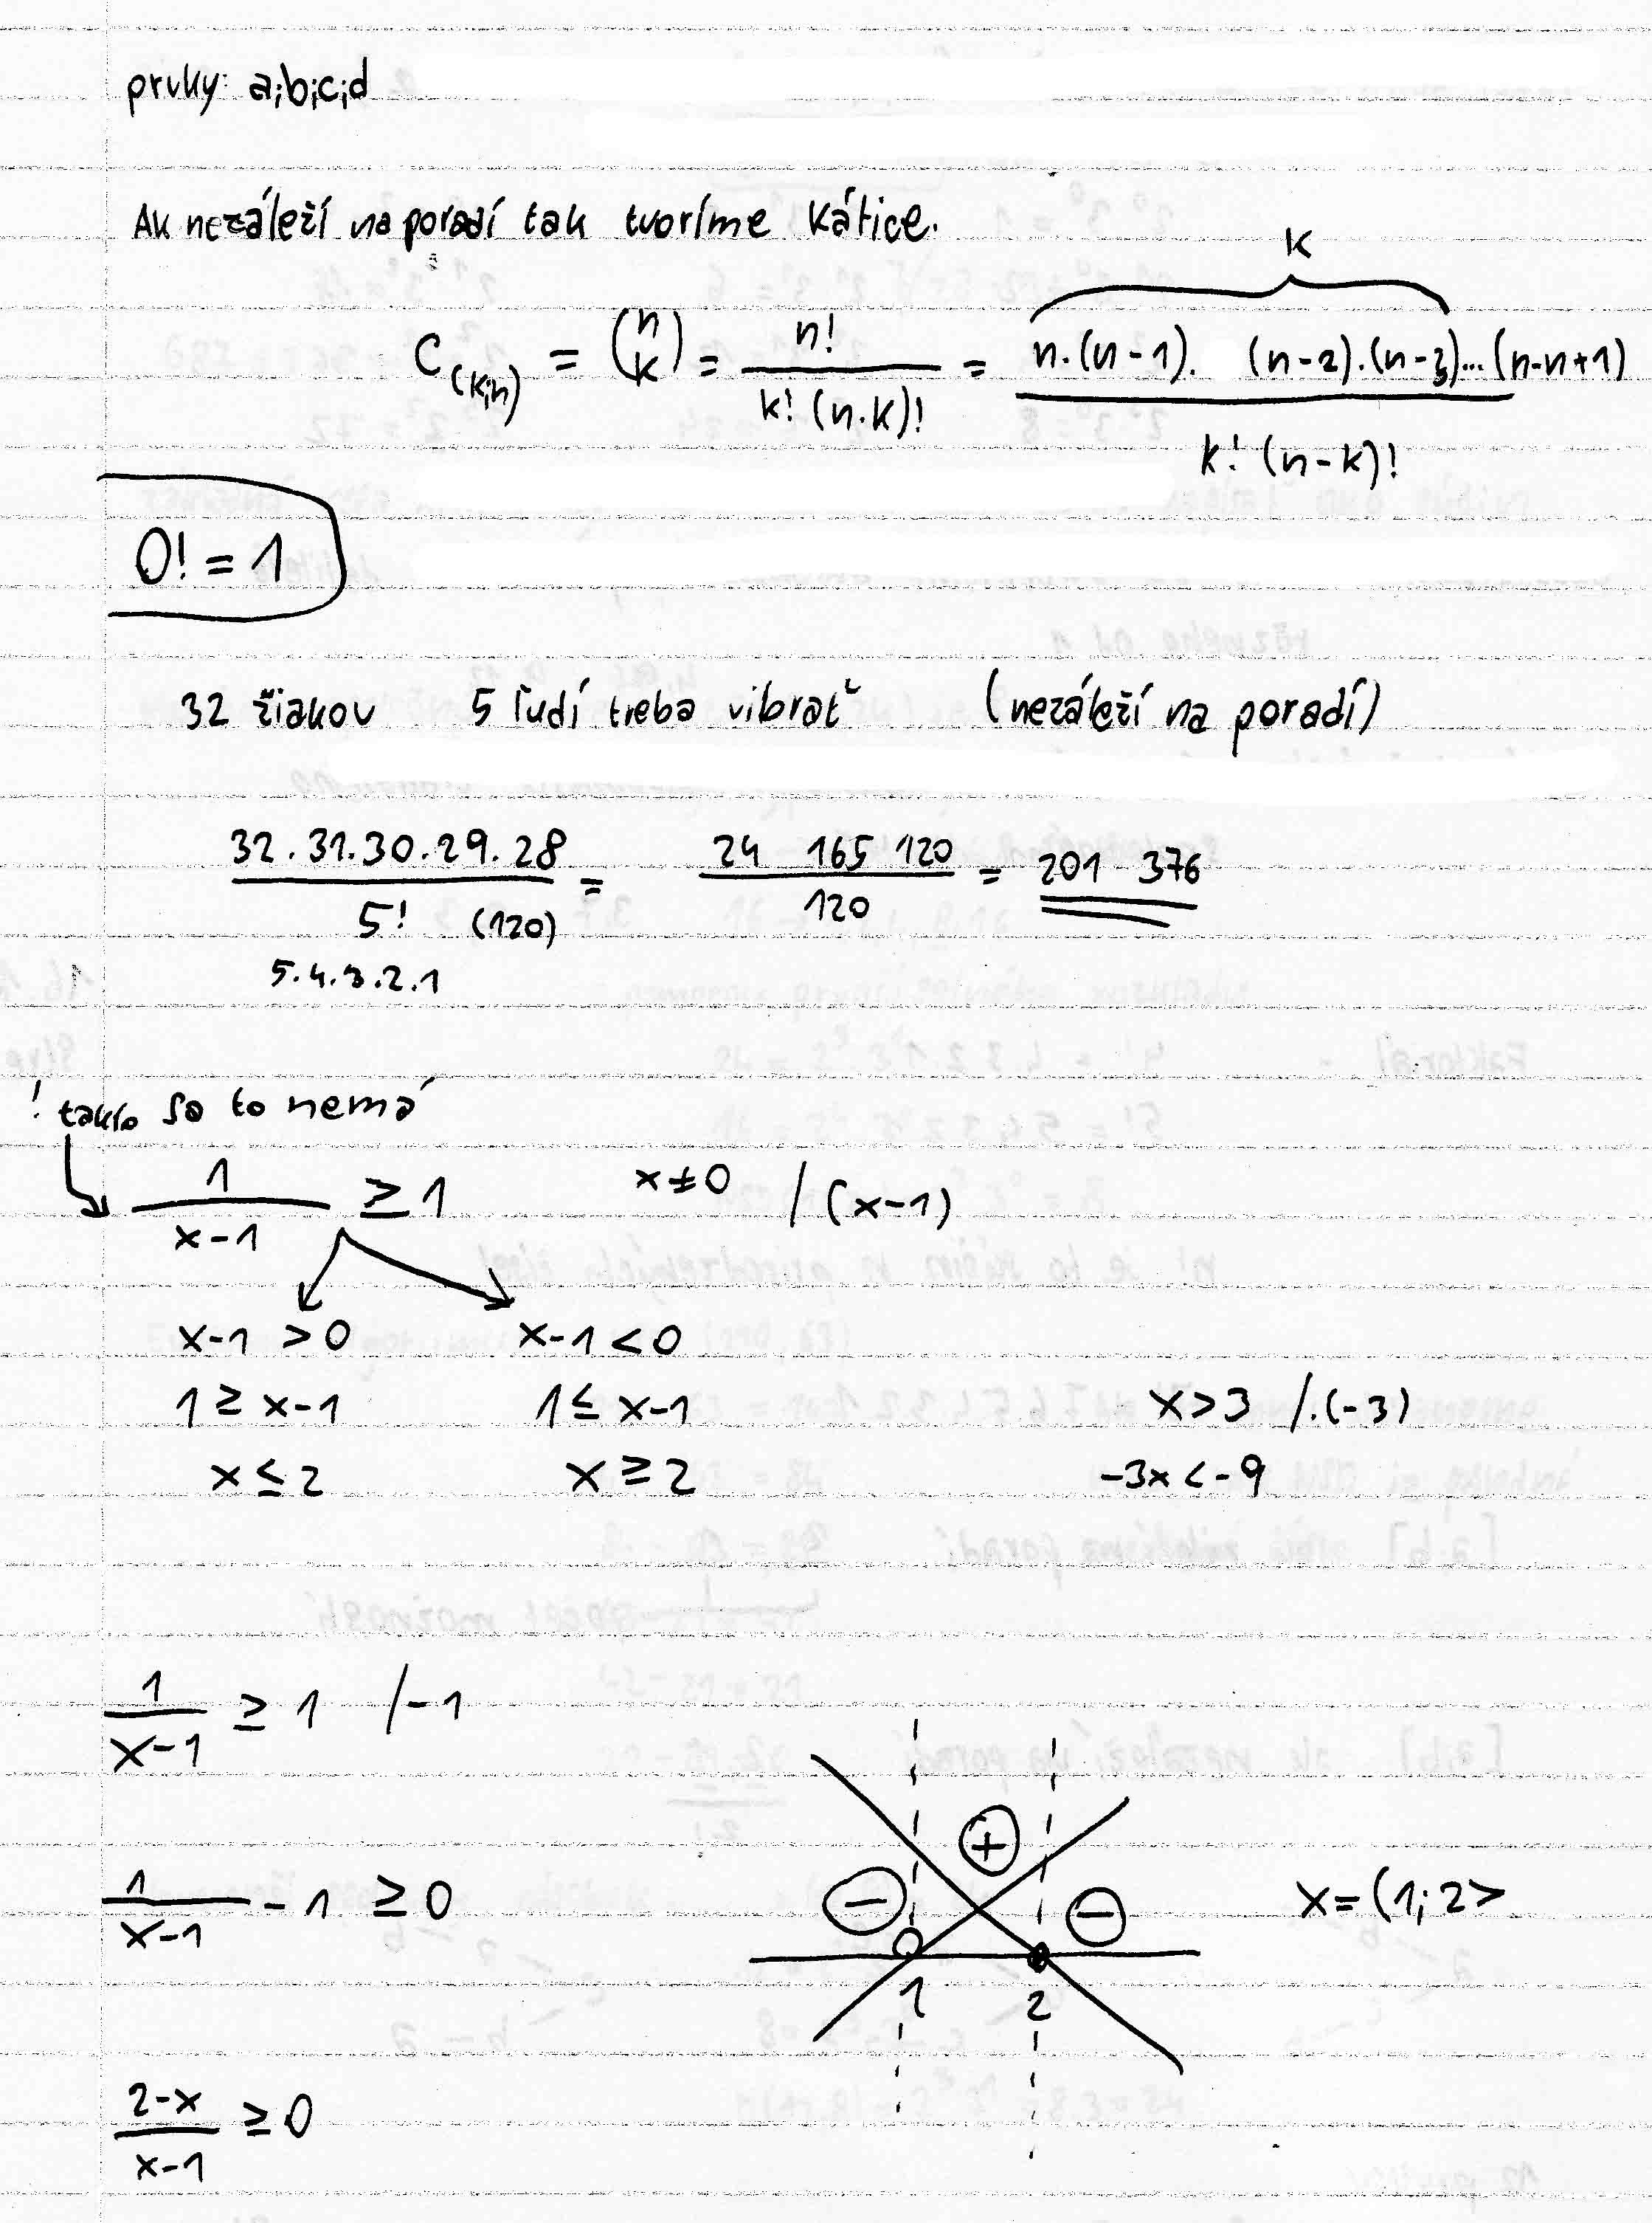 prvky: a;b;c;d
Ak nezáleží na poradí tak tvoríme kátice.
K
C(k;n) = (n k) = n! / k! (n.k)! = n.(n-1). (n-2).(n-3)...(n-n+1) / k! (n-k)!
0! = 1
32 žiakov 5 ľudí treba vibrať (nezáleží na poradí)
32.31.30.29.28 / 5! (120) = 24 165 120 / 120 = 201 376
5.4.3.2.1
! takto sa to nemá
1 / x-1 ≥ 1 x≠0 / (x-1)
x-1 > 0 x-1 < 0
1 ≥ x-1 1 ≤ x-1 x>3 /.(-3)
x ≤ 2 x ≥ 2 -3x < -9
1 / x-1 ≥ 1 /-1
1 / x-1 - 1 ≥ 0
- + -
1 2
x=(1;2>
2-x / x-1 ≥ 0